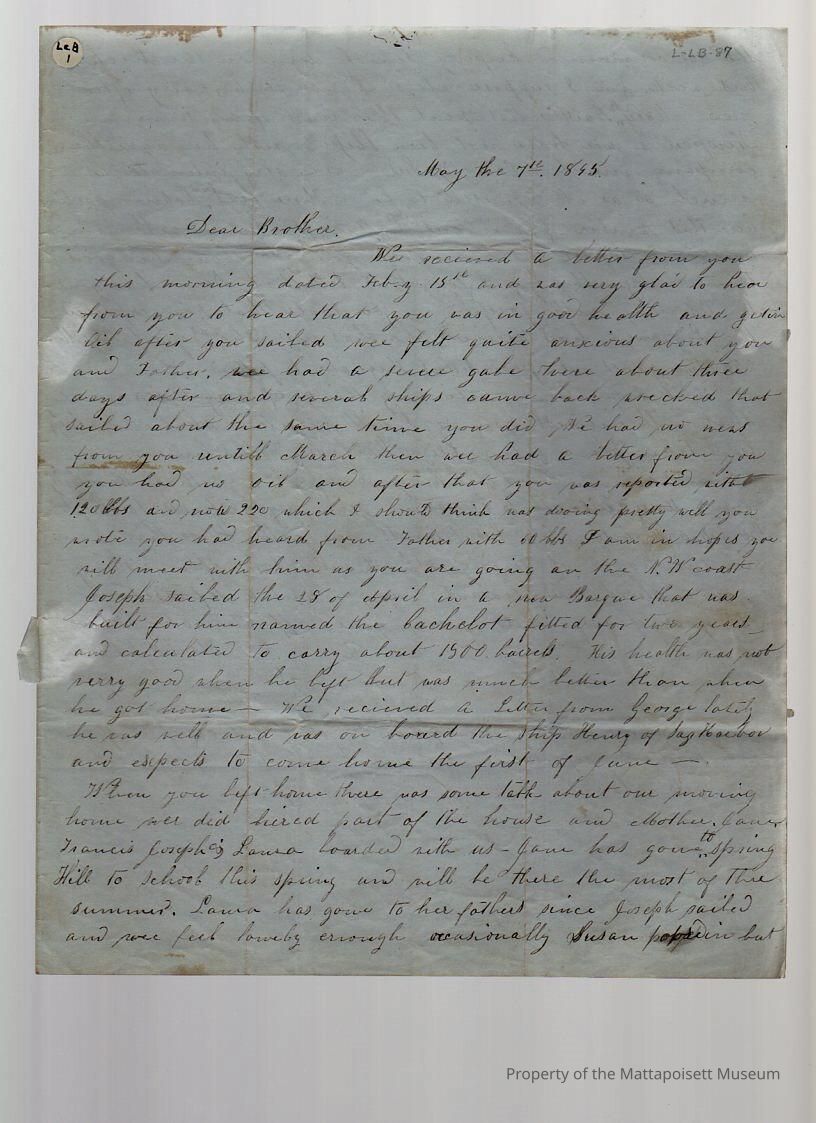 LcB
1
L-LB-87
May the 7st. 1845.
Dear Brother.
We recieved a letter from you
this morning dated Feb.y. 15st and was very glad to hear
from you to hear that you was in good health and getin
Oil after you sailed wee felt quite anxious about you
and Father. wee had a severe gale here about three
days after and several ships came back wrecked that
sailed about the same time you did We had no news
from you untill March then wee had a letter from you
you had no oil and after that you was reported with
120 bbls and now 220 which I should think was dooing pretty well you
wrote you had heard from Father with 60 bbls I am in hopes you
will meet with him as you are going on the N.W coast
Joseph sailed the 28 of April in a new Barque that was
built for him named the Cachelot fitted for two years
and calculated to carry about 1500 barrels. His health was not
verry good when he left but was much better than when
he got home — We recieved a Letter from George lately
he was well and was on board the ship Henry of Sag Harbor
and expects to come home the first of June —.
When you left home there was some talk about our moving
home wee did hiered part of the house and Mother, Jane,
Francis Joseph & Laura boarded with us - Jane has gone to Spring
Hill to school this spring and will be there the most of the
summer. Laura has gone to her fathers since Joseph sailed
and wee feel lonely enough occasionally Susan in but
Property of the Mattapoisett Museum